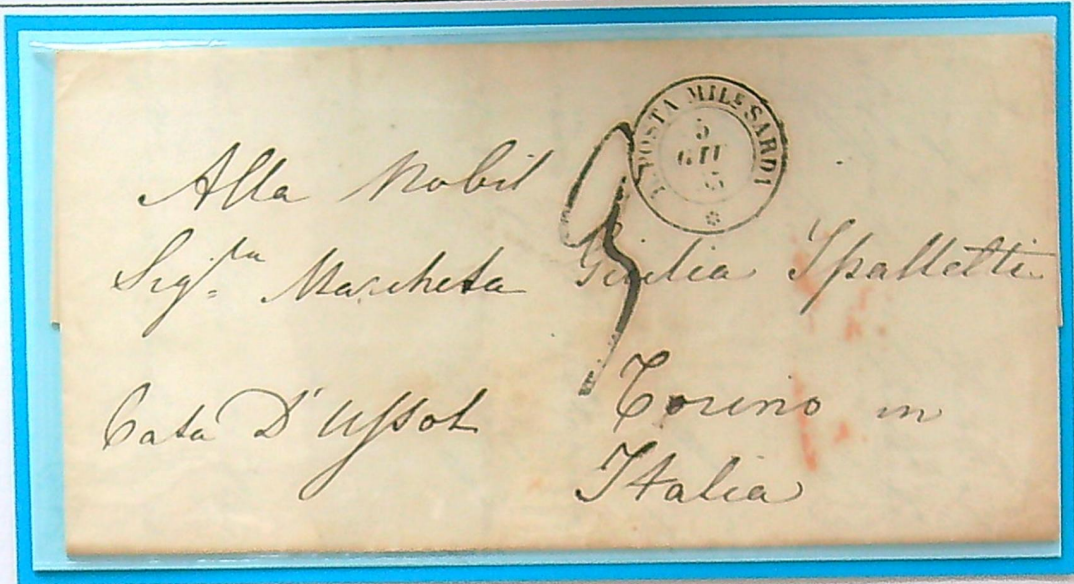 POSTA MILE SARDI
5
GIU
Alla Nobil
Sig.ra Marchesa Giulia Spalletti
Casa D'Ussol
Torino in
Italia